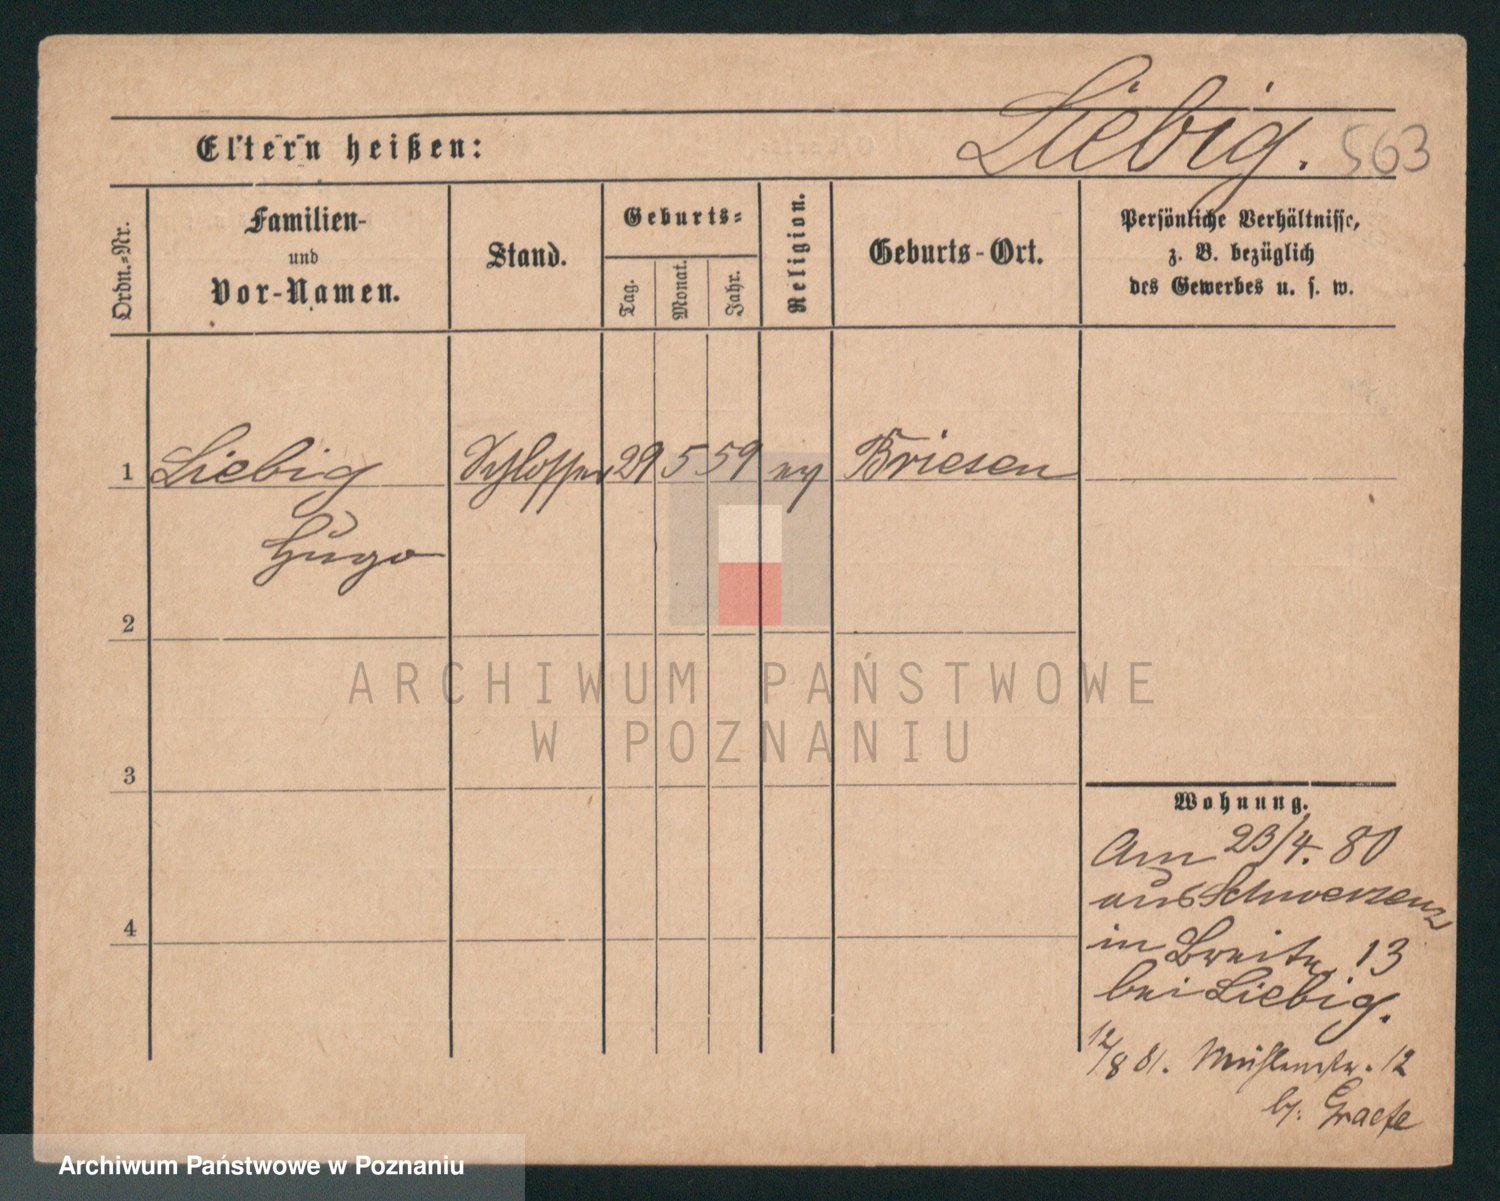 Liebig. 563
Eltern heißen:
Ordn.-Nr.
Familien-
und
Vor-Namen.
Stand.
Geburts-
Tag.
Monat.
Jahr.
Religion.
Geburts-Ort.
Persönliche Verhältnisse,
z. B. bezüglich
des Gewerbes u. s. w.
1 Liebig Schlosser 29 5 59 ev Briesen
Hugo
2
3
4
Wohnung.
Am 23/4. 80
aus Schwersenz
in Breite 13
bei Liebig.
12/8 81. Mühlenstr. 12
b: Graefe
ARCHIWUM PAŃSTWOWE
W POZNANIU
Archiwum Państwowe w Poznaniu